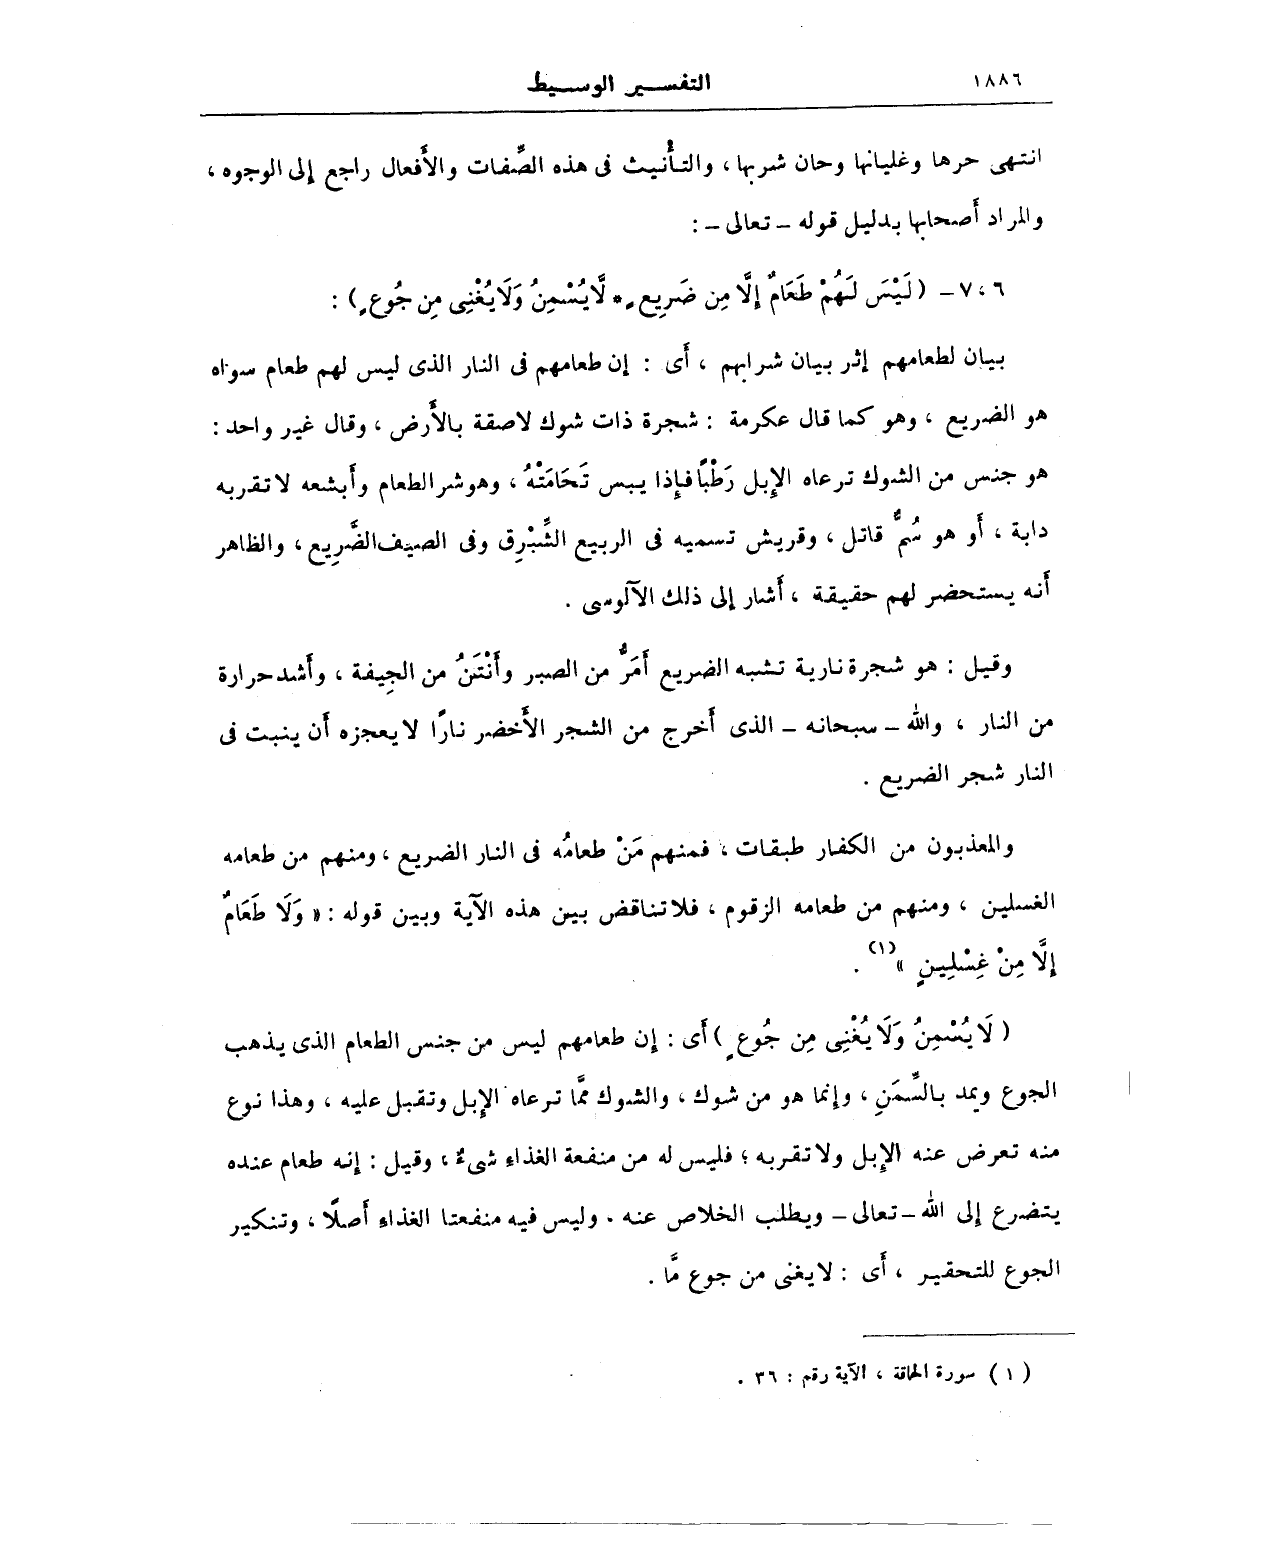 ١٨٨٦ التفسير الوسيط
انتهى حرها وغليانها وحان شربها ، والتأْنيث فى هذه الصِّفات والأَفعال راجع إلى الوجوه ،
والمراد أَصحابها بدليل قوله – تعالى – :
٦ ، ٧ – ( لَيْسَ لَهُمْ طَعَامٌ إِلَّا مِن ضَرِيعٍ * لَّا يُسْمِنُ وَلَا يُغْنِى مِن جُوعٍ ) :
بيان لطعامهم إثر بيان شرابهم ، أَى : إن طعامهم فى النار الذى ليس لهم طعام سواه
هو الضريع ، وهو كما قال عكرمة : شجرة ذات شوك لاصقة بالأَرض ، وقال غير واحد :
هو جنس من الشوك ترعاه الإِبل رَطْبًا فإِذا يبس تَحَامَتْهُ ، وهو شر الطعام وأَبشعه لا تقربه
دابة ، أَو هو سُمٌّ قاتل ، وقريش تسميه فى الربيع الشِّبْرِق وفى الصيف الضَّرِيع ، والظاهر
أَنه يستحضر لهم حقيقة ، أَشار إلى ذلك الآلوسى .
وقيل : هو شجرة نارية تشبه الضريع أَمَرُّ من الصبر وأَنْتَنُ من الجِيفة ، وأَشد حرارة
من النار ، والله – سبحانه – الذى أَخرج من الشجر الأَخضر نارًا لا يعجزه أَن ينبت فى
النار شجر الضريع .
والمعذبون من الكفار طبقات ، فمنهم مَنْ طعامُه فى النار الضريع ، ومنهم من طعامه
الغسلين ، ومنهم من طعامه الزقوم ، فلا تناقض بين هذه الآية وبين قوله : « وَلَا طَعَامٌ
إِلَّا مِنْ غِسْلِينٍ » (١) .
( لَا يُسْمِنُ وَلَا يُغْنِى مِن جُوعٍ ) أَى : إن طعامهم ليس من جنس الطعام الذى يذهب
الجوع ويمد بالسِّمَنِ ، وإنما هو من شوك ، والشوك ممَّا ترعاه الإِبل وتقبل عليه ، وهذا نوع
منه تعرض عنه الإِبل ولا تقربه ؛ فليس له من منفعة الغذاءِ شىءٌ ، وقيل : إنه طعام عنده
يتضرع إلى الله – تعالى – ويطلب الخلاص عنه . وليس فيه منفعتا الغذاءِ أَصلًا ، وتنكير
الجوع للتحقير ، أَى : لا يغنى من جوع مَّا .
( ١ ) سورة الحاقة ، الآية رقم : ٣٦ .